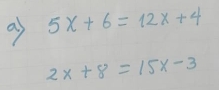 a) 5x + 6 = 12x + 4
2x + 8 = 15x - 3